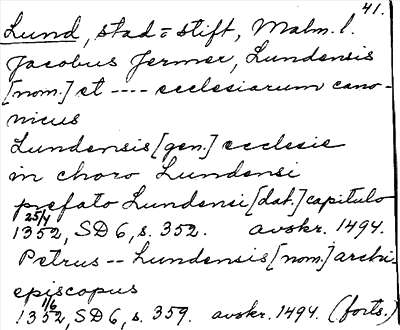 41.
Lund, stad o stift, Malm. l.
Jacobus Jermer, Lundensis
[nom.] et ---- ecclesiarum cano-
nicus
Lundensis [gen.] ecclesie
in choro Lundensi
prefato Lundensi [dat.] capitulo
25/4 1352, SD 6, s. 352. avskr. 1494.
Petrus -- Lundensis [nom.] archi-
episcopus
1/6 1352, SD 6, s. 359. avskr. 1494. (forts.)